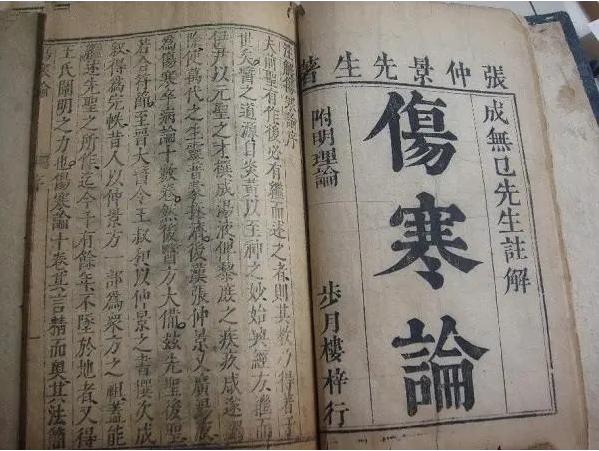 張仲景先生著
成無已先生註解
傷寒論
附明理論
步月樓梓行
註解傷寒論序
夫前聖有作後必有繼而述之者則其教乃得著于
世矣醫之道源自炎黃以至神之妙始興經方繼而
伊尹以元聖之才撰成湯液俾黎庶之疾疢咸遂蠲
除使萬代之生靈普蒙拯濟後漢張仲景又廣湯液
為傷寒卒病論十數卷然後醫方大備茲先聖後聖
若合符節至晉大醫令王叔和以仲景之書撰次成
敘得為完帙昔人以仲景方一部為眾方之祖蓋能
繼述先聖之所作迄今千有餘年不墜於地者又得
王氏闡明之力也傷寒論十卷其言精而奧其法簡